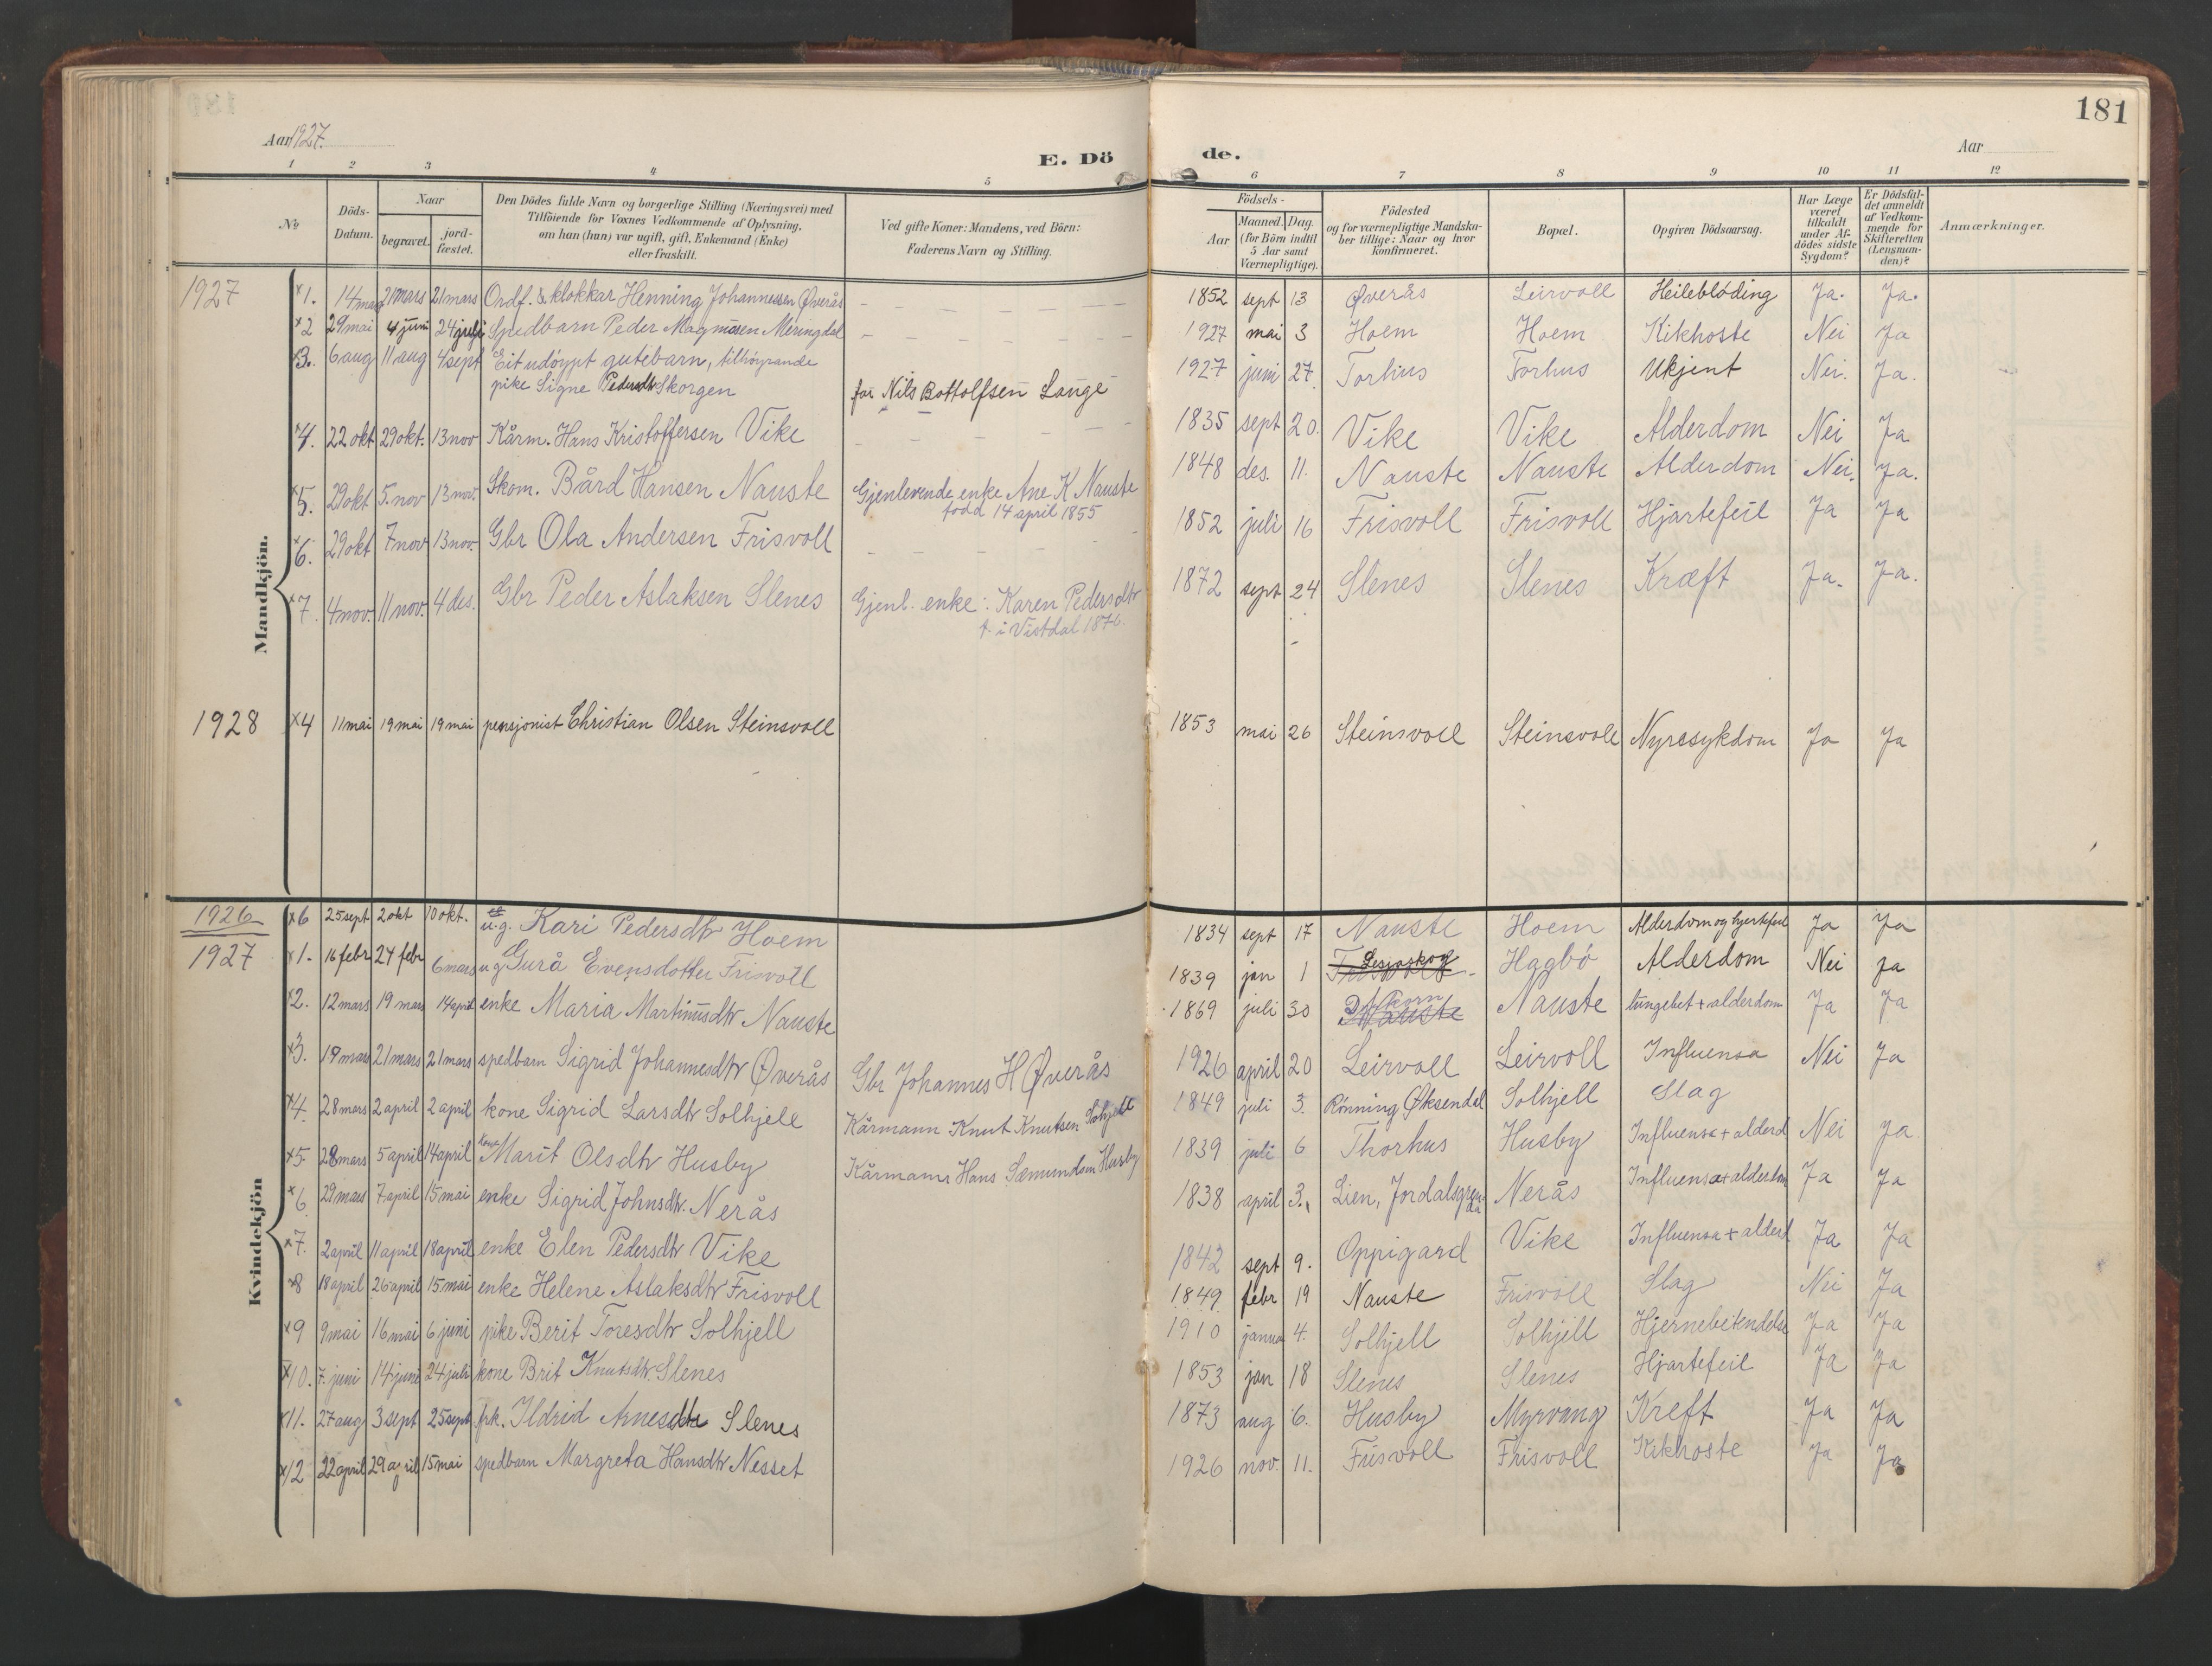 181
Aar 1927.
E. Dö
de.
Aar
1 2 3 4 5 6 7 8 9 10 11 12
№ Döds-Datum. Naar begravet. jord-fæstet. Den Dödes fulde Navn og borgerlige Stilling (Næringsvei) med Tilföiende for Voxnes Vedkommende af Oplysning, om han (hun) var ugift, gift, Enkemand (Enke) eller fraskilt. Ved gifte Koner: Mandens, ved Börn: Faderens Navn og Stilling. Födsels- Aar Maaned. Dag. (for Börn indtil 5 Aar samt Værnepligtige). Födested og for værnepligtige Mandskaber tillige: Naar og hvor konfirmeret. Bopæl. Opgiven Dödsaarsag. Har Læge været tilkaldt under Afdödes sidste Sygdom? Er Dödsfaldet anmeldt af Vedkommende for Skifteretten (Lensmanden)? Anmærkninger.
Mandkjön.
1927 x1. 14 mars 21 mars 21 mars Ordf. & klokkar Henning Johannessen Øverås – 1852 sept 13 Øverås Leirvoll Heileblöding Ja. Ja.
x2 29 mai 4 juni 24 juli Spedbarn Peder Magnusen Meringdal – 1927 mai 3 Hoem Hoem Kikhoste Nei Ja
x3. 6 aug 11 aug 4 sept Eit udöypt gutebarn, tilhöyrande 1927 juni 27. Torhus Torhus Ukjent Nei. Ja.
pike Signe Pedersdtr Skorgen far Nils Bottolfsen Lange
x4. 22 okt 29 okt. 13 nov Kårm. Hans Kristoffersen Vike – 1835 sept 20. Vike Vike Alderdom Nei Ja
x5. 29 okt 5. nov 13 nov. Skom. Bård Hansen Nauste Gjenlevende enke Ane K Nauste 1848 des. 11. Nauste Nauste Alderdom Nei. Ja.
född 14 april 1855
x6. 29 okt 7 nov 13 nov. Gbr Ola Andersen Frisvoll – 1852 juli 16 Frisvoll Frisvoll Hjartefeil Ja Ja
x7. 4 nov. 11 nov. 4 des. Gbr Peder Aslaksen Slenes Gjenl. enke: Karen Pedersdtr 1872 sept 24 Slenes Slenes Kræft Ja. Ja.
f. i Vistdal
1928 x4 11 mai 19 mai 19 mai pensjonist Christian Olsen Steinsvoll 1853 mai 26 Steinsvoll Steinsvoll Nyresykdom Ja Ja
Kvindekjön
1926 x6 25 sept 2 okt 10 okt. u.g. Kari Pedersdtr Hoem 1834 sept 17 Nauste Hoem Alderdom og hjertefeil Ja Ja
1927 x1. 16 febr 24 febr 6 mars ug Gurå Evensdotter Frisvoll 1839 jan 1 Lesjaskog Hagbö Alderdom Nei Ja
x2. 12 mars 19 mars 14 april enke Maria Martinusdtr Nauste 1869 juli 30 Nauste Nauste lungebet + alderdom Ja Ja
x3. 19 mars 21 mars 21 mars spedbarn Sigrid Johannesdtr Øverås Gbr Johannes H Øverås 1926 april 20 Leirvoll Leirvoll Influensa Nei Ja
x4. 28 mars 2 april 2 april kone Sigrid Larsdtr Solhjell Kårmann Knut Knutsen Solhjell 1849 juli 3. Rönning Øksendal Solhjell Slag
x5. 28 mars 5 april 14 april kone Marit Olsdtr Husby Kårmann Hans Sæmundsen Husby 1839 juli 6 Thorhus Husby Influensa + alderd Nei Ja
x6. 29 mars 7 april 15 mai enke Sigrid Johnsdtr. Nerås 1838 april 3. Lien, Jordalsgrenda Nerås Influensa + alderdom Ja Ja
x7. 2 april 11 april 18 april enke Elen Pedersdtr Vike 1842 sept 9. Oppigard Vike Influensa + alderd Ja Ja
x8 18 april 26 april 15 mai enke Helene Aslaksdtr Frisvoll 1849 febr 19 Nauste Frisvoll Slag Nei Ja
x9 9 mai 16 mai 6 juni pike Berit Toresdtr Solhjell 1910 janua 4. Solhjell Solhjell Hjernebetendelse Ja Ja
x10. 7. juni 14 juni 24 juli kone Brit Knutsdtr. Slenes 1853 jan 18 Slenes Slenes Hjartefeil Ja Ja
x11. 27 aug 3 sept 25 sept frk. Ildrid Arnesdtr Slenes 1873 aug 6. Husby Myrvang Kreft Ja Ja
x12 22 april 29 april 15 mai spedbarn Margreta Hansdtr Nesset 1926 nov. 11. Frisvoll Frisvoll Kikhoste Ja Ja